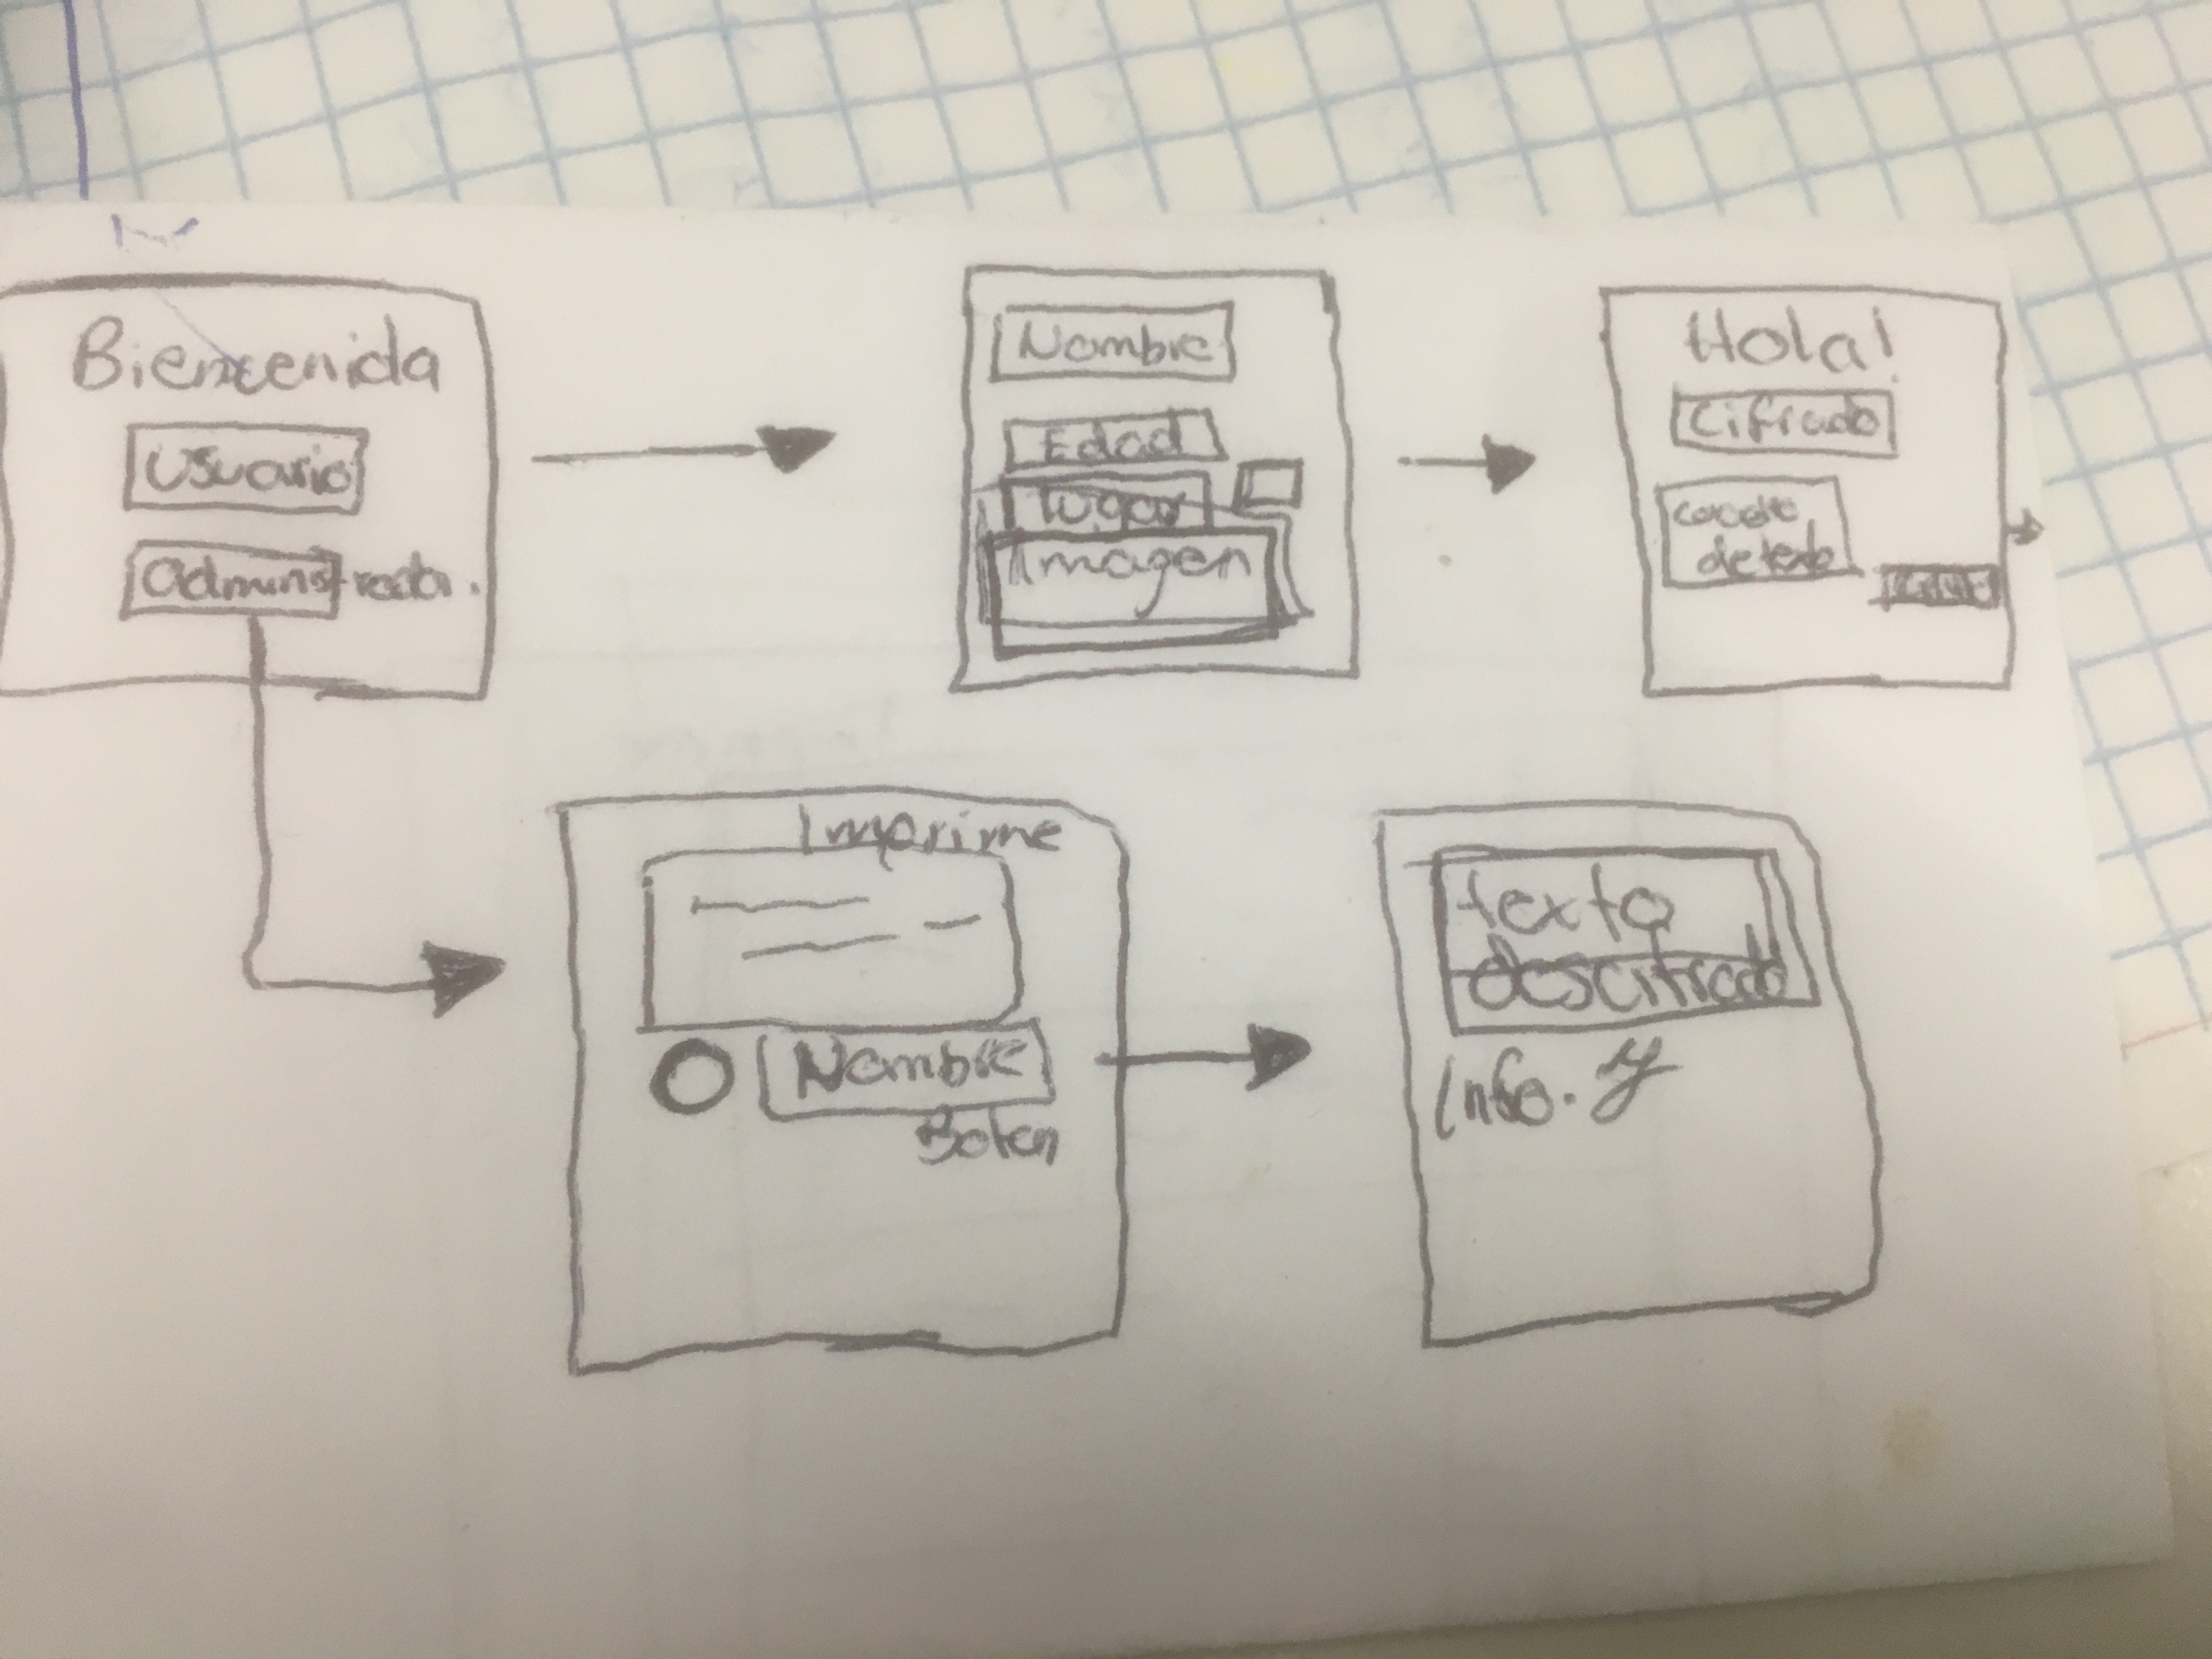 Bienvenida
Usuario
Administrador.
Nombre
Edad
lugar
Imagen
Hola!
Cifrado
cuadro
de texto
Imprime
Nombre
Boton
texto
descifrado
Info. y